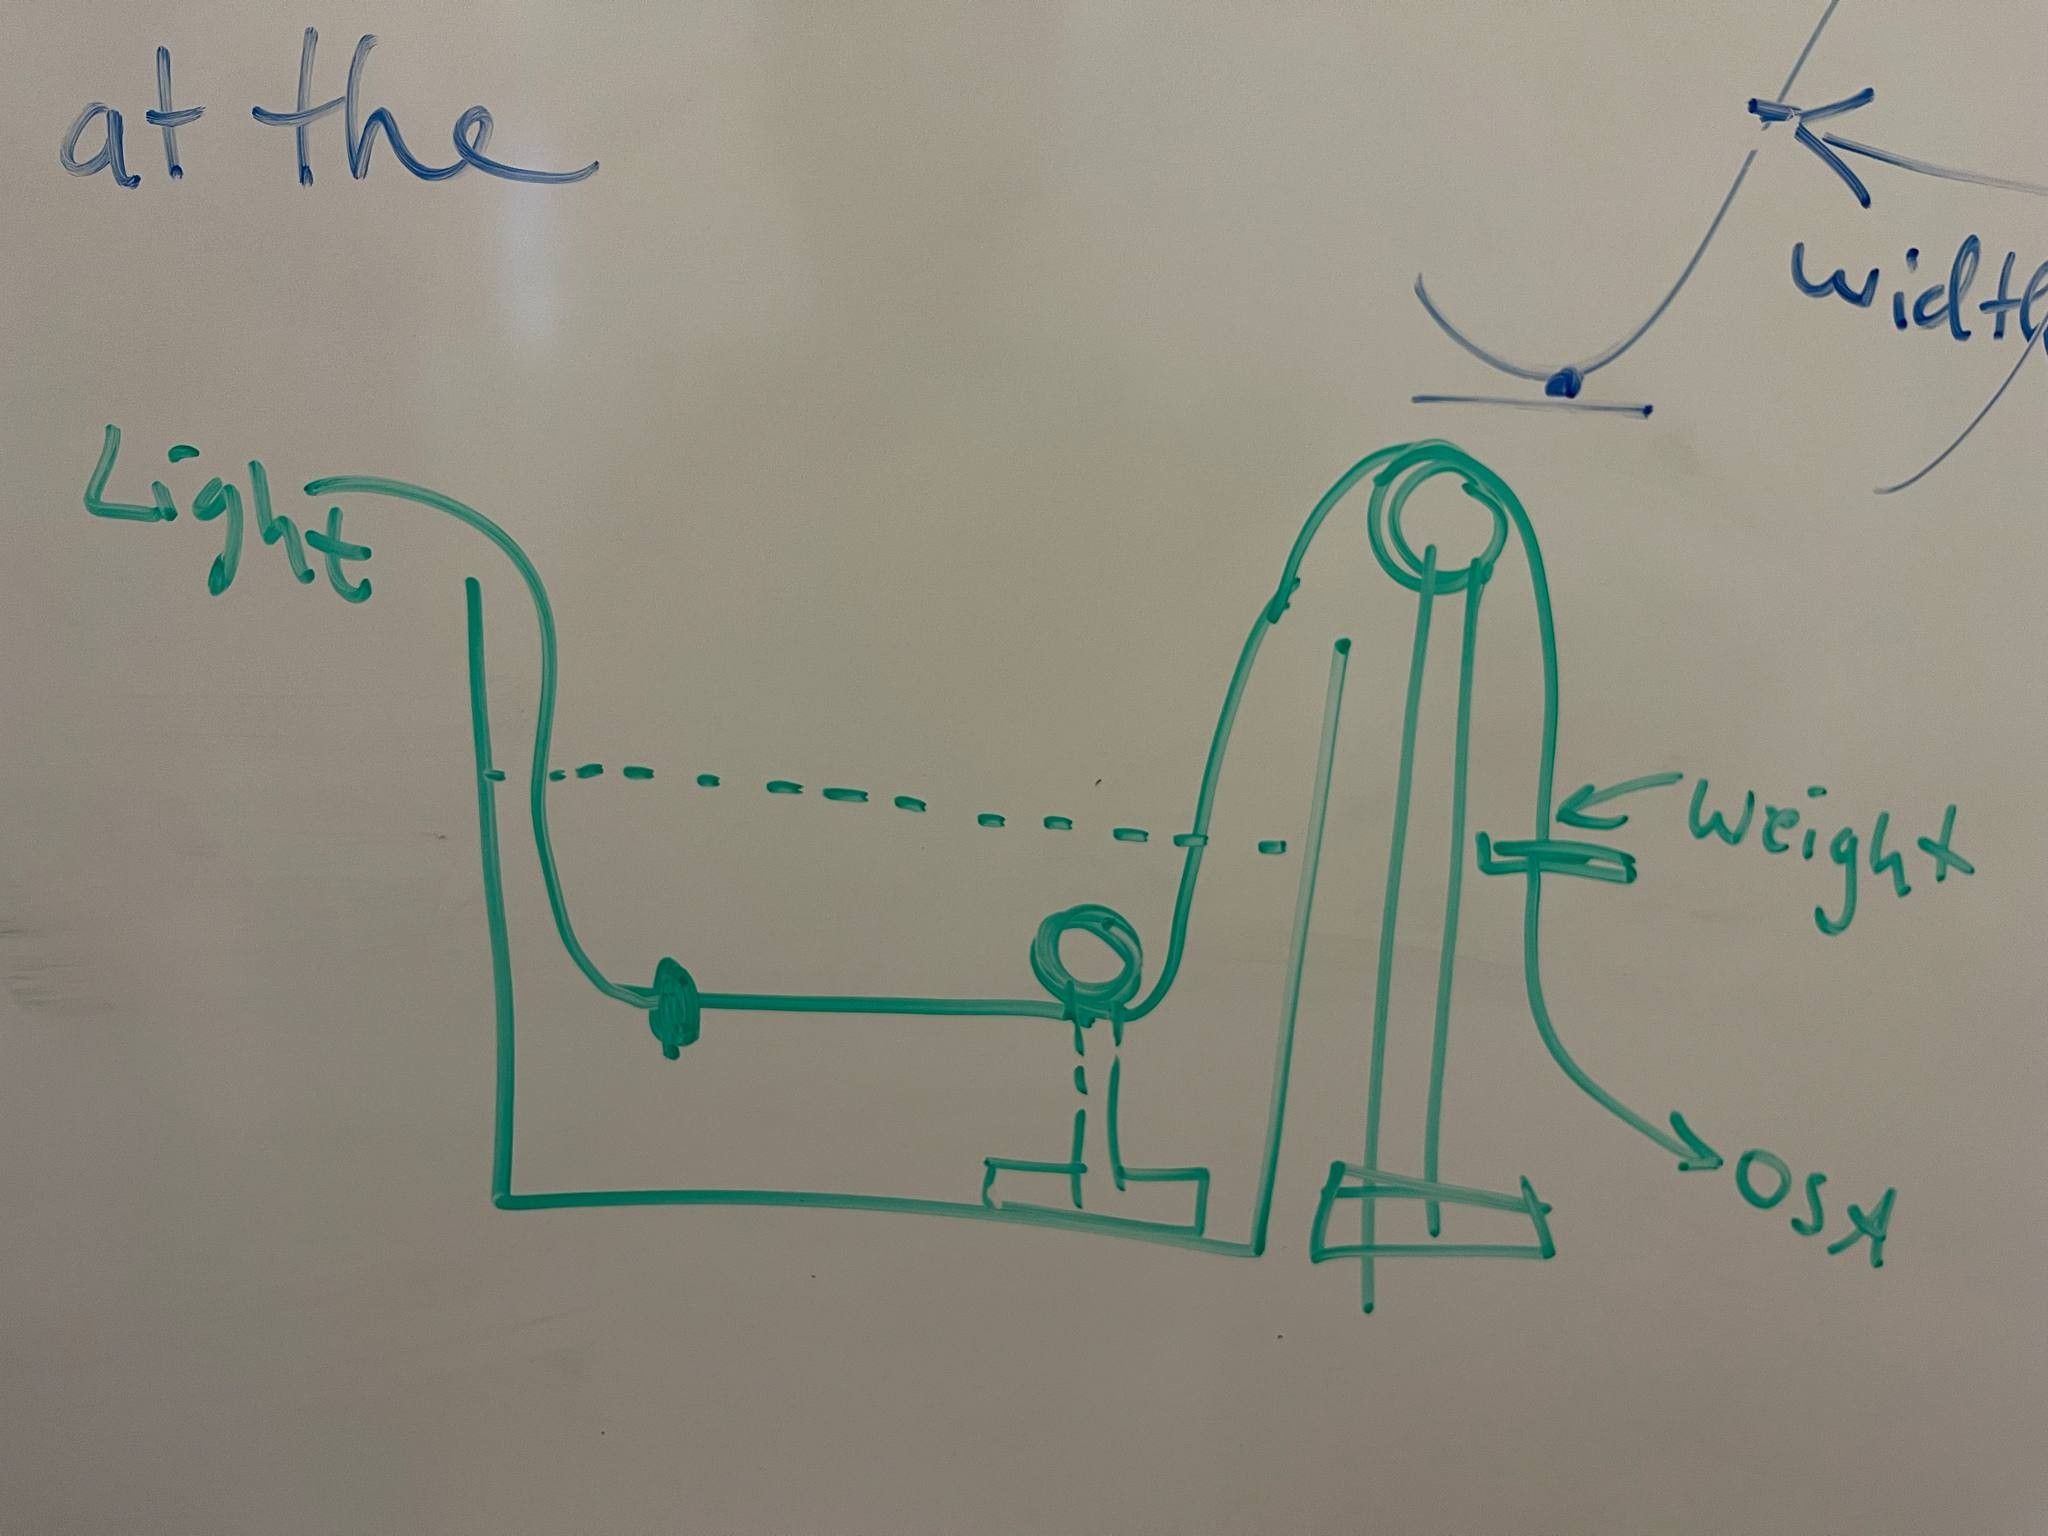 at the
width
Light
Weight
OSA